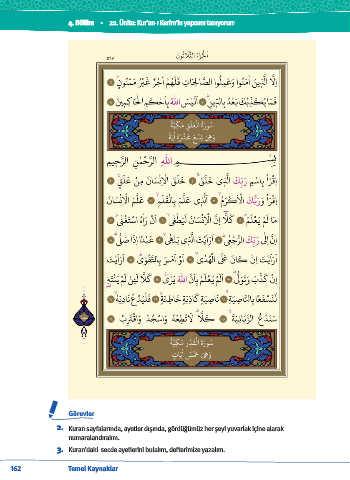 4. Bölüm • 22. Ünite: Kur'an-ı Kerim'in yapısını tanıyorum
الجزء الثلاثون
إِلَّا الَّذِينَ آمَنُوا وَعَمِلُوا الصَّالِحَاتِ فَلَهُمْ أَجْرٌ غَيْرُ مَمْنُونٍ
فَمَا يُكَذِّبُكَ بَعْدُ بِالدِّينِ أَلَيْسَ اللّٰهُ بِأَحْكَمِ الْحَاكِمِينَ
سُورَةُ الْعَلَقِ مَكِّيَّةٌ
وَهِيَ تِسْعَ عَشْرَةَ آيَةً
بِسْمِ اللّٰهِ الرَّحْمٰنِ الرَّحِيمِ
اِقْرَأْ بِاسْمِ رَبِّكَ الَّذِي خَلَقَ خَلَقَ الْإِنْسَانَ مِنْ عَلَقٍ
اِقْرَأْ وَرَبُّكَ الْأَكْرَمُ الَّذِي عَلَّمَ بِالْقَلَمِ عَلَّمَ الْإِنْسَانَ
مَا لَمْ يَعْلَمْ كَلَّا إِنَّ الْإِنْسَانَ لَيَطْغَى أَنْ رَآهُ اسْتَغْنَى
إِنَّ إِلَى رَبِّكَ الرُّجْعَى أَرَأَيْتَ الَّذِي يَنْهَى عَبْدًا إِذَا صَلَّى
أَرَأَيْتَ إِنْ كَانَ عَلَى الْهُدَى أَوْ أَمَرَ بِالتَّقْوَى أَرَأَيْتَ
إِنْ كَذَّبَ وَتَوَلَّى أَلَمْ يَعْلَمْ بِأَنَّ اللّٰهَ يَرَى كَلَّا لَئِنْ لَمْ يَنْتَهِ
لَنَسْفَعًا بِالنَّاصِيَةِ نَاصِيَةٍ كَاذِبَةٍ خَاطِئَةٍ فَلْيَدْعُ نَادِيَهُ
سَنَدْعُ الزَّبَانِيَةَ كَلَّا لَا تُطِعْهُ وَاسْجُدْ وَاقْتَرِبْ
سُورَةُ الْقَدْرِ مَكِّيَّةٌ
وَهِيَ خَمْسُ آيَاتٍ
Görevler
2. Kuran sayfalarında, ayetler dışında, gördüğümüz her şeyi yuvarlak içine alarak
numaralandıralım.
3. Kuran'daki secde ayetlerini bulalım, defterimize yazalım.
162 Temel Kaynaklar